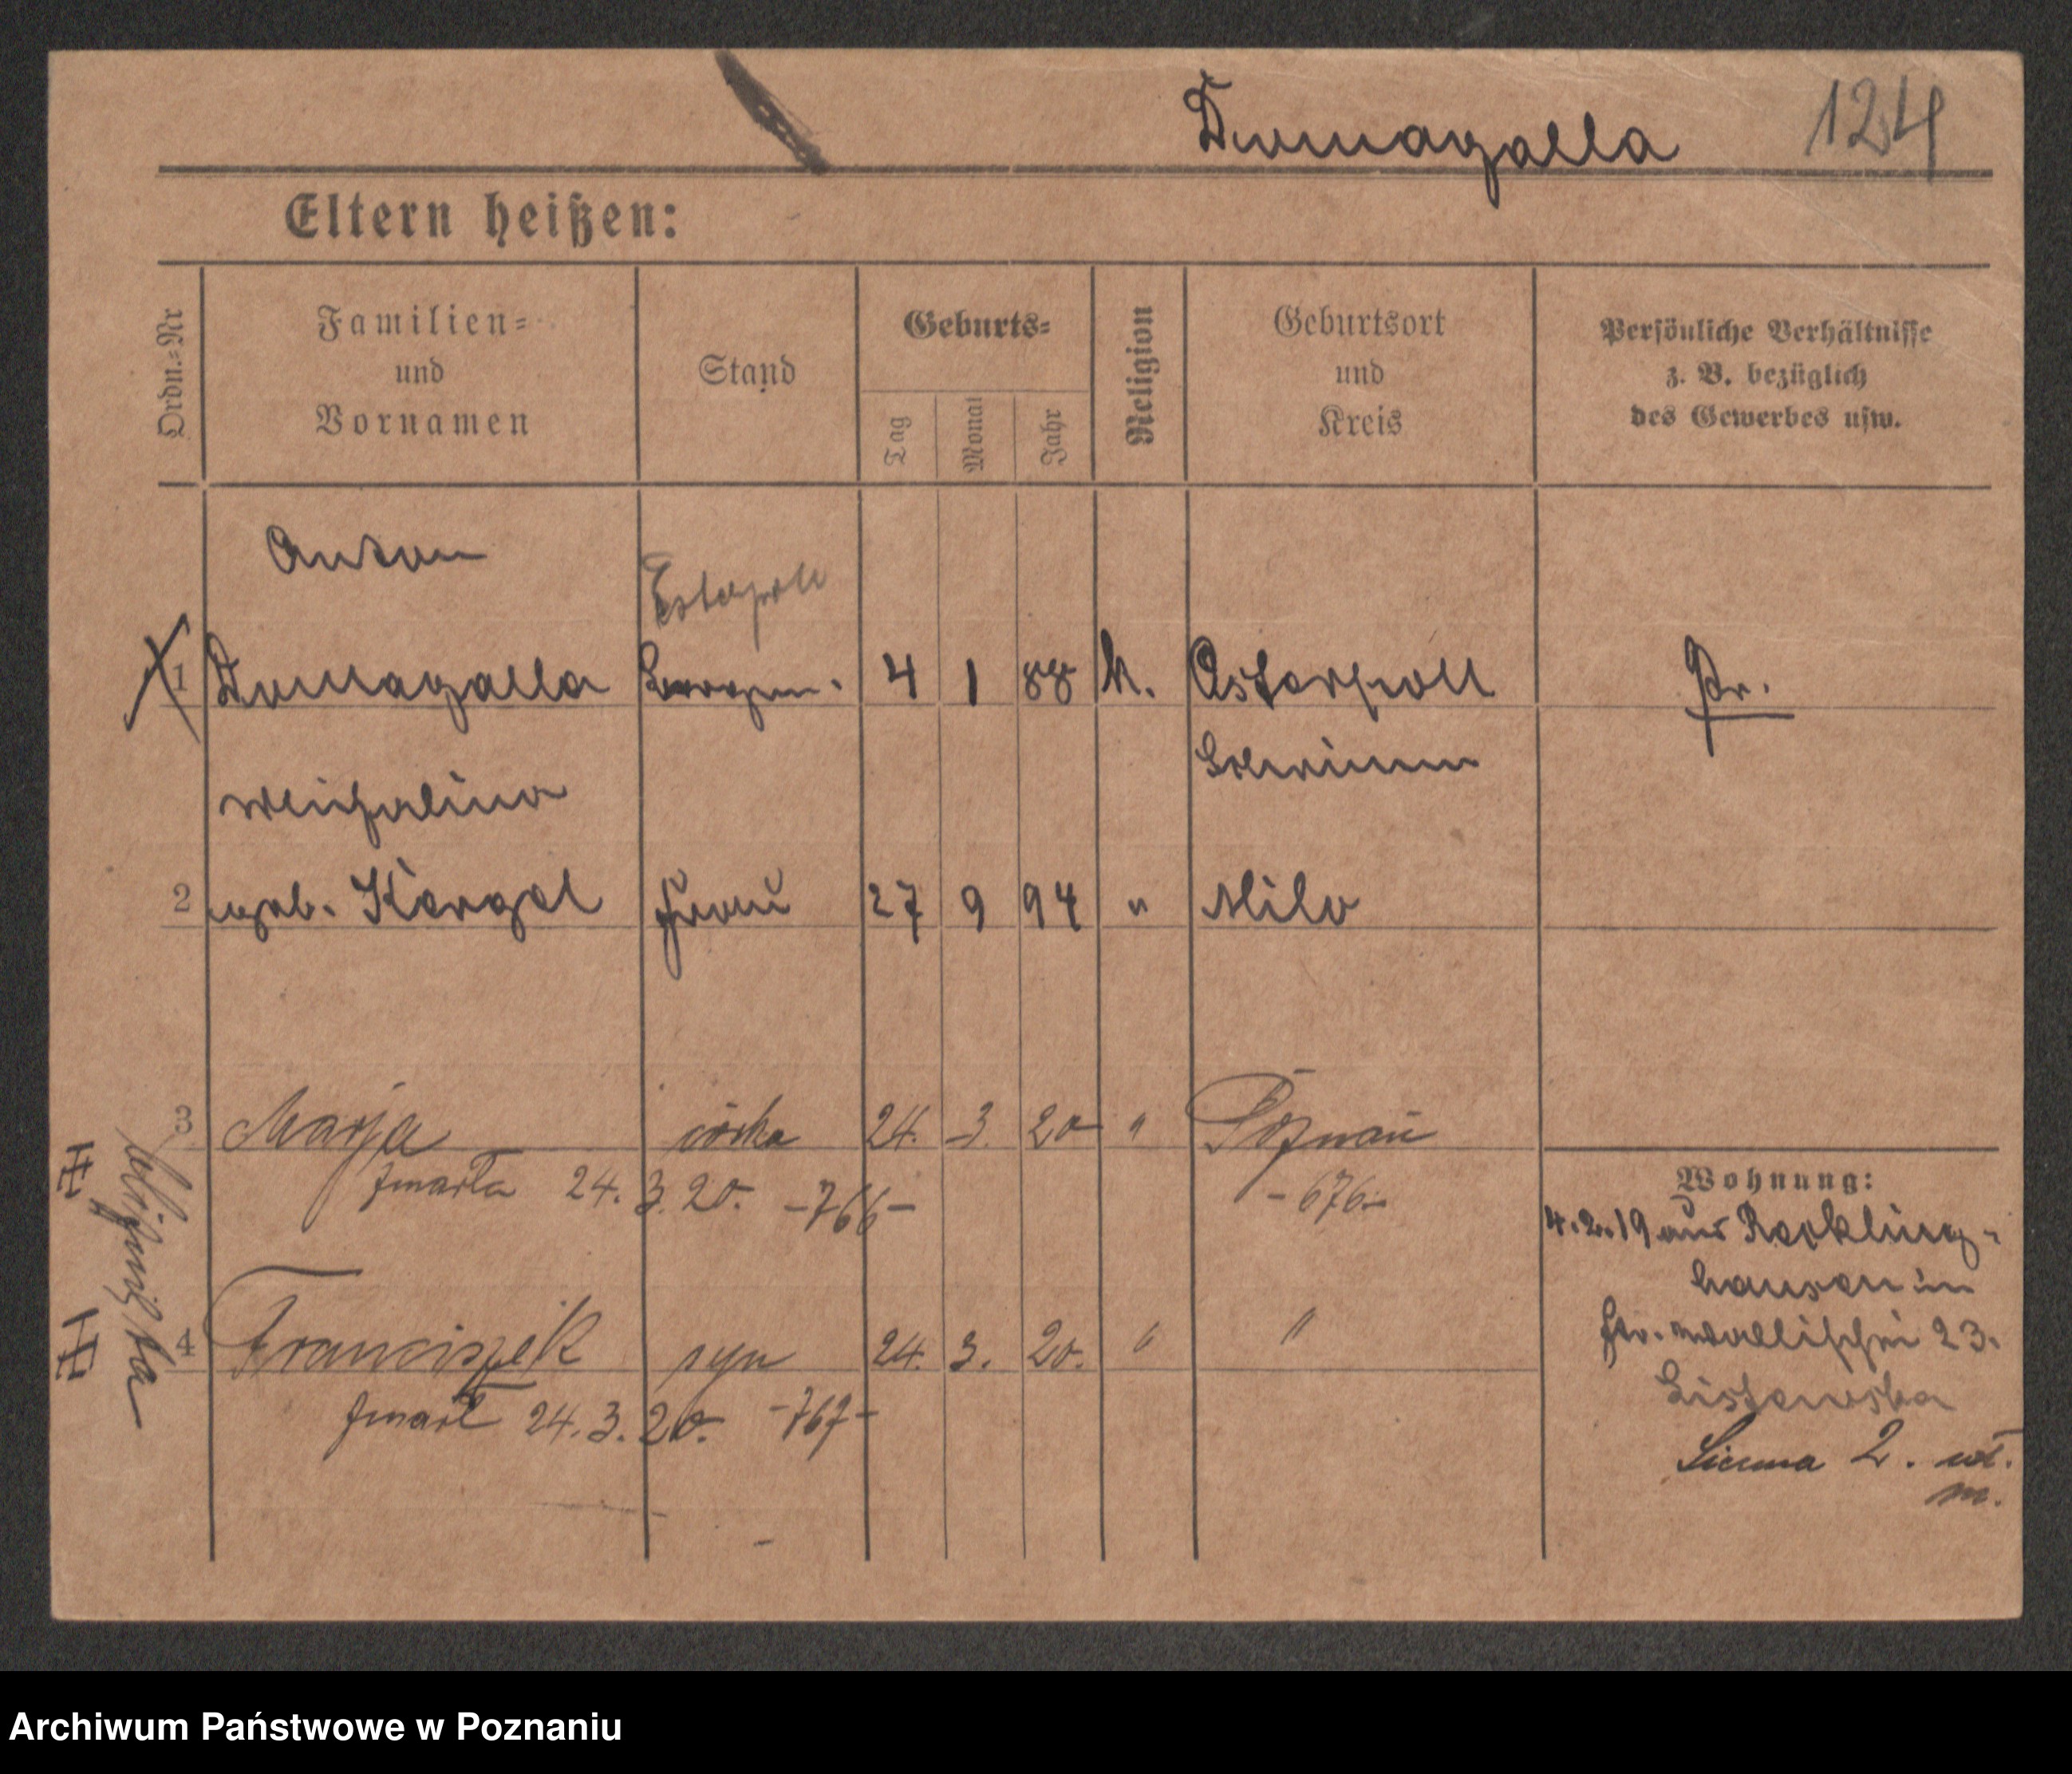 Domagalla 124
Eltern heißen:
Ordn.=Nr
Familien=
und
Vornamen
Stand
Geburts=
Tag
Monat
Jahr
Religion
Geburtsort
und
Kreis
Persönliche Verhältnisse
z. B. bezüglich
des Gewerbes usw.
Anton
1 Domagalla 4 1 88 k. Pr.
2 geb. Frau 27 9 94 " Milo
3 Marja córka 24. 3. 20 " Poznań
zmarła 24. 3. 20. -766- -676-
4 Franciszek syn 24. 3. 20. " "
zmarł 24. 3. 20. -767-
bliźnięta
Wohnung:
4.2.19 aus Reckling-
hausen in
23.
2.
m.
Archiwum Państwowe w Poznaniu